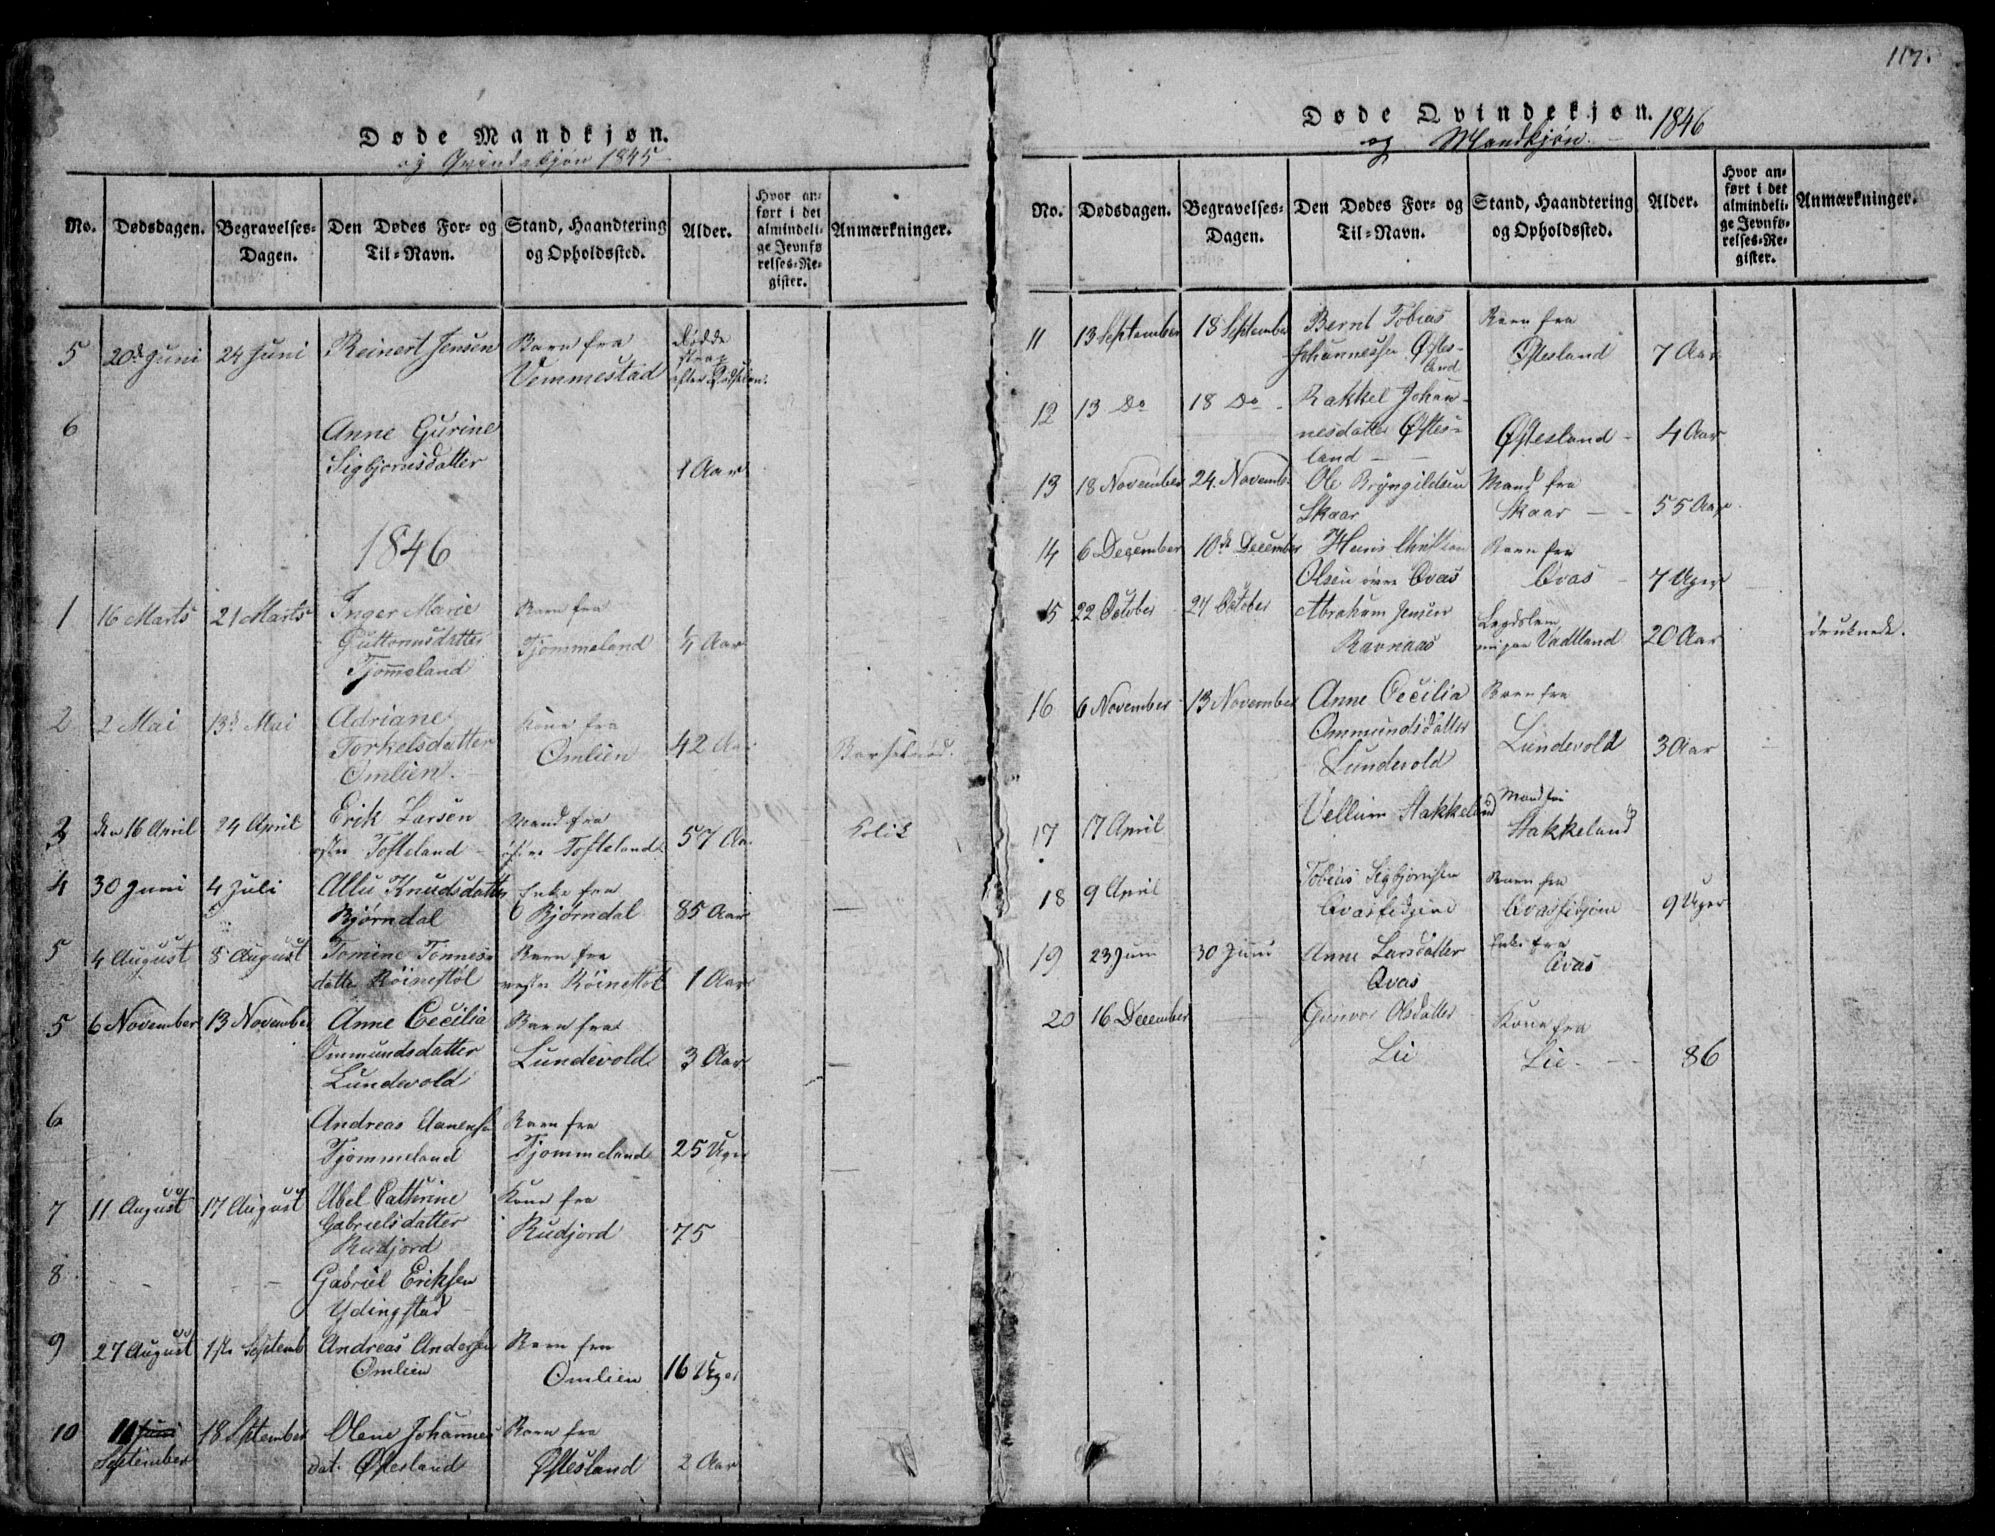 Døde Mandkjøn.
og Qvindekjøn 1845
No. Dødsdagen. Begravelses-Dagen. Den Dødes For- og Til-Navn. Stand, Haandtering og Opholdssted. Alder. Hvor anført i det almindelige Jevnførelses-Register. Anmærkninger.
5 20d Juni 24 Juni Reinert Jensen Barn fra Vemmestad dødde strax efter Fødselen.
6 Anne Gurine Sigbjørnsdatter 1 Aar
1846
1 16 Marts 21 Marts Inger Marie Guttormsdatter Tjømeland Barn fra Tjømmeland Aar
2 2 Mai 13d Mai Adriane Torkelsdatter Omlien. Kone fra Omlien 42 Aar
3 den 16 April 24 April Erik Larsen østre Tofteland Mand fra østre Tofteland 57 Aar Kolik
4 30 Juni 4 Juli Knudsdatter Bjørndal Enke fra Bjørndal 85 Aar
5 4 August 8 August Tomine Tønnesdatter Røinestøl Barn fra vestre Røinestøl 1 Aar
5 6 November 13 November Anne Cecilia Ommundsdatter Lundevold Barn fra Lundevold 3 Aar
6 Andreas Aanensen Tjømmeland Barn fra Tjømmeland 25 Uger
7 11 August 17 August Abel Cathrine Gabrielsdatter Rudjord Kone fra Rudjord 75
8 Gabriel Eriksen Ydingstad
9 27 August 1ste Septemb Andreas Andersen Omlien Barn fra Omlien 16 Uger
10 11 Juni September 18 September Olene Johannesdat. Øftesland Barn fra Øftesland 2 Aar
117.
Døde Qvindekjøn. 1846
og Mandkjøn.
No. Dødsdagen. Begravelses-Dagen. Den Dødes For- og Til-Navn. Stand, Haandtering og Opholdssted. Alder. Hvor anført i det almindelige Jevnførelses-Register. Anmærkninger.
11 13 September 18 September Bernt Tobias Johannessen Øftesland Barn fra Øftesland 7 Aar
12 13 Do 18 Do Rakkel Johannesdatter Øftesland Øftesland 4 Aar
13 18 November 24. Novemb. Ole Bryngildsen Skaar Mand fra Skaar 55 Aar
14 6 December 10de December Hans Christian Olsen øvre Qvas Barn fra Qvas 7 Uger
15 22 October 27 October Abraham Jensen Ravnaas Lægdslem Vadtland 20 Aar druknede.
16 6 November 13 November Anne Cecilia Ommundsdatter Lundevold Barn fra Lundevold 3 Aar
17 17 April Vellum Stakkeland Mand fra Stakkeland
18 9 April Tobias Sigbjørnsen Qvasfidjene Barn fra Qvasfidjene 9 Uger
19 23 Juni 30 Juni Anne Larsdatter Qvas Enke fra Qvas
20 16 December Gunvor Olsdatter Lie Kone fra Lie. 86